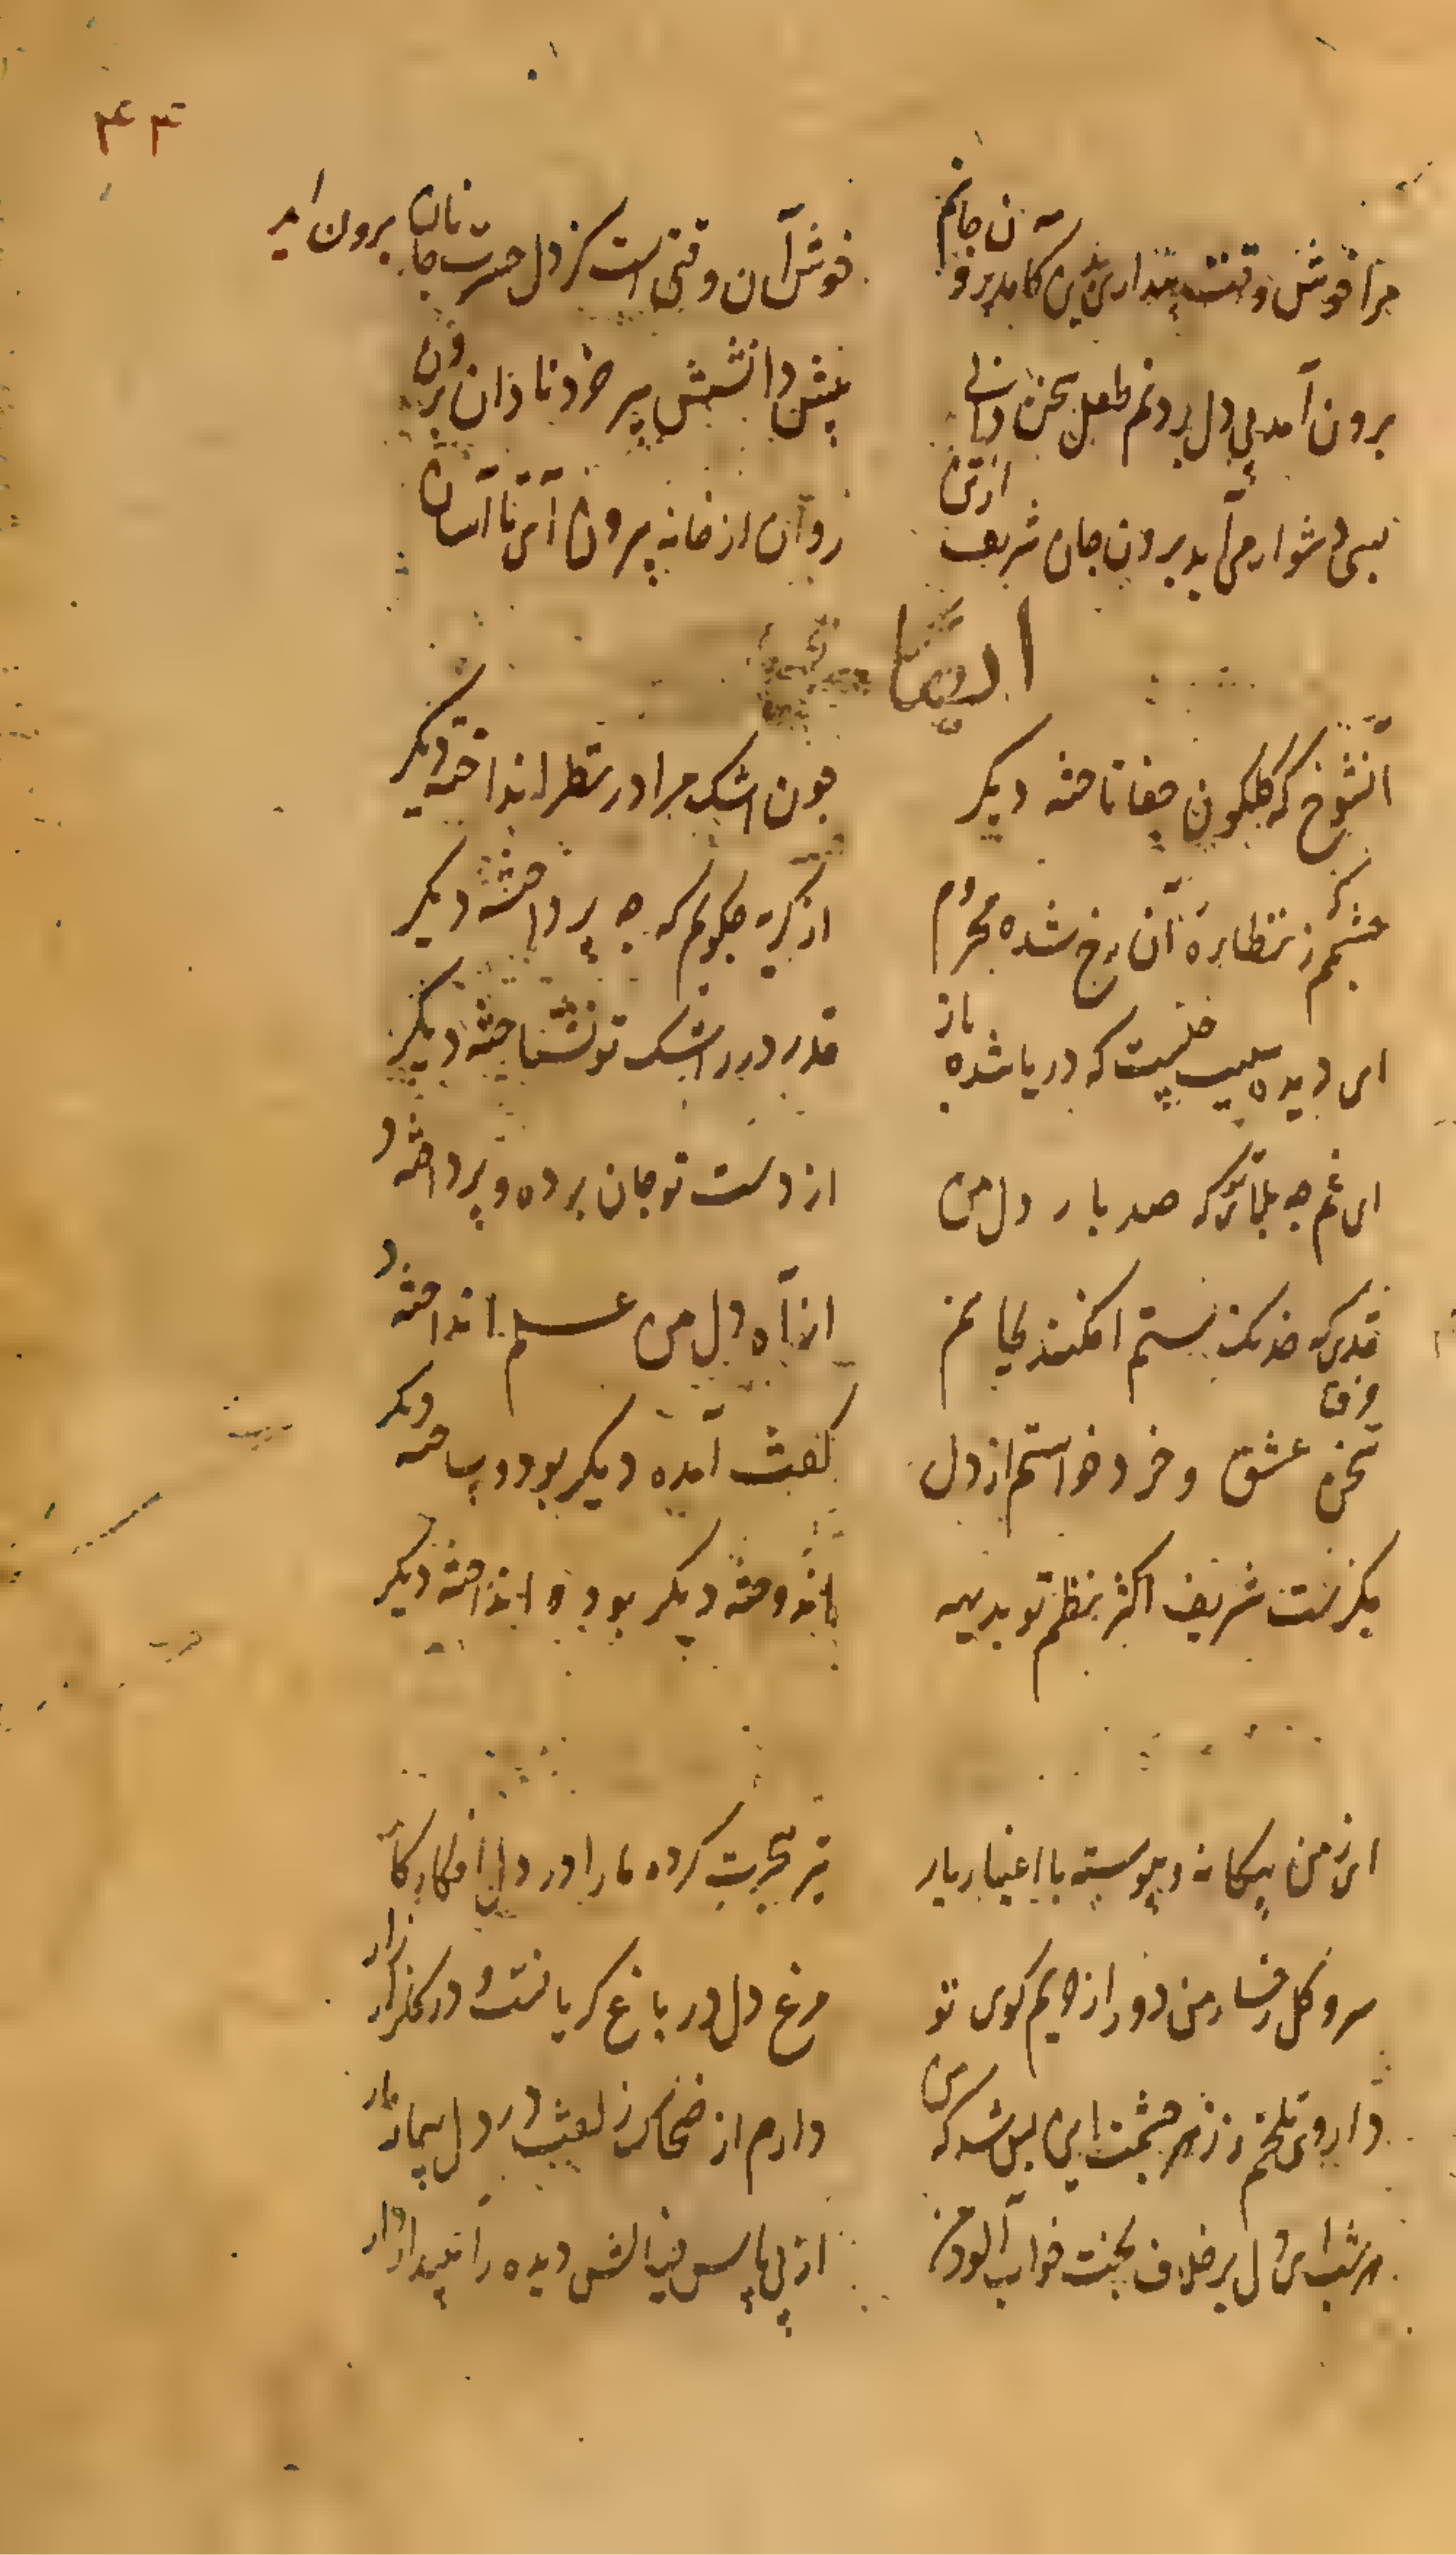 ۴۴
مرا خوش وقتست پنداری که آمد برون جانم خوش آن وقتی است کز دل حسرت جانان برون آید
برون آمد پی دل بردنم طفل سخن دانی پیش دانشش پیر خرد نادان برون
بسی دشوار می آید برون جان شریف از تن روان از خانه بیرون آی تا آسان
ایضا
آنشوخ که گلگون جفا تاخته دیگر چون اشک مرا در نظر انداخته دیگر
چشمم ز نظاره آن رخ شده محروم از گریه چگویم که چه پرداخته دیگر
ای دیده سبب چیست که دریا شده باز قدر در اشک تو نشناخته دیگر
ای غم چه بلائی تو که صد بار دل من از دست تو جان برده و پرداخته د
قدی که خدنک ستم افکند بجانم از آه دل من علم انداخته د
سخن عشق و خرد خواستم از دل گفت آمده دیگر بود و ساخته دیگر
بگزنت شریف اکثر نظم تو بدیهه اندوخته دیگر بود و انداخته دیگر
ای ز من بیگانه و پیوسته با اغیار یار تیر هجرت کرده ما را در دل افکار کار
سرو گل رخسار من دور از حریم کوی تو مرغ دل در باغ گریانست و در گلزار زار
داروی تلخم ز زهر چشمت این بس شد که من دارم از ضحاک زلفت در دل بیمار مار
هر شب ای دل بر خلاف بخت خواب آلود من از پی پاس خیالش دیده را بیدار دار